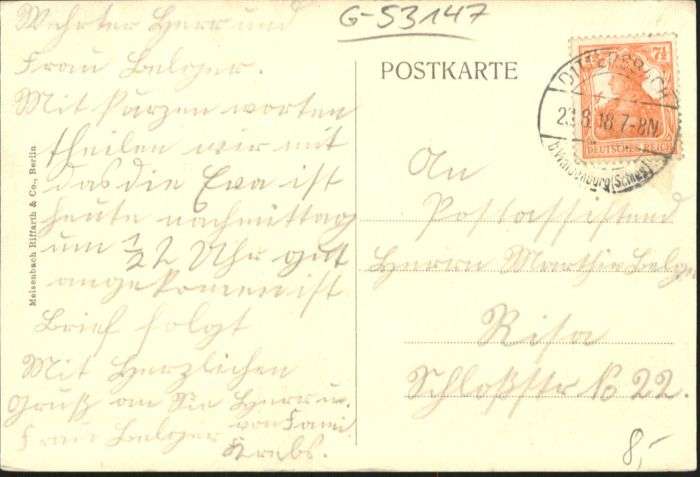 G-53147
Wehrter Herr und
Frau Belger.
Mit kurzen worten
theilen wir mit
das die Eva ist
heute nachmittag
um 1/2 2 Uhr gut
angekomen ist
Brief folgt
Mit Herzlichen
Gruß an Sie Herr u.
Frau Belger von Fami
Krebs.
Meisenbach Riffarth & Co., Berlin
POSTKARTE
7½
DEUTSCHES REICH
DITTERSBACH
23.8.18.7-8N
An
Postassistend
Herrn Martin Belger
Risa
Schloßstr No 22.
8,-